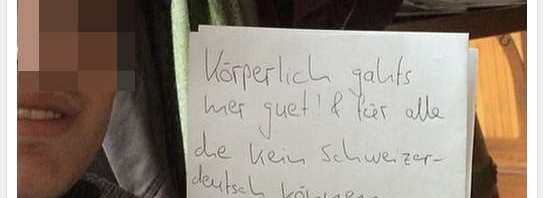 Körperlich gahts
mer guet! & für alle
die kein Schweizer-
deutsch können